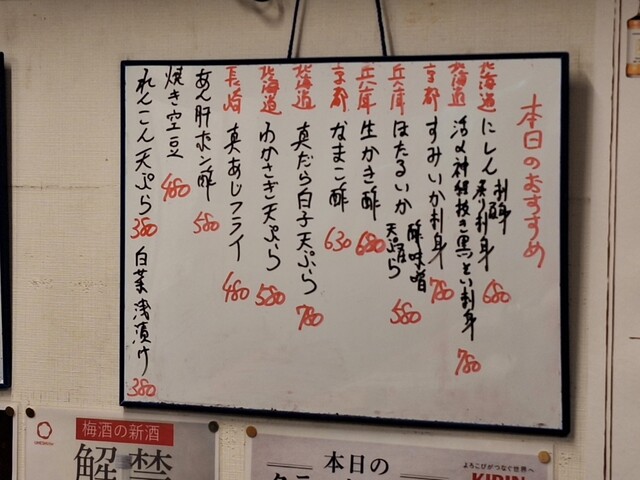 本日のおすすめ
北海道 にしん 刺身 炙り刺身 680
北海道 活〆神経抜き黒そい刺身 780
京都 すみいか刺身 780
兵庫 ほたるいか 酢味噌 天ぷら 580
兵庫 生かき酢 680
京都 なまこ酢 630
北海道 真だら白子天ぷら 780
北海道 わかさぎ天ぷら 580
長崎 真あじフライ 480
あん肝ポン酢 580
焼き空豆 480
れんこん天ぷら 380
白菜浅漬け 380
梅酒の新酒
解禁
本日の
よろこびがつなぐ世界へ
KIRIN